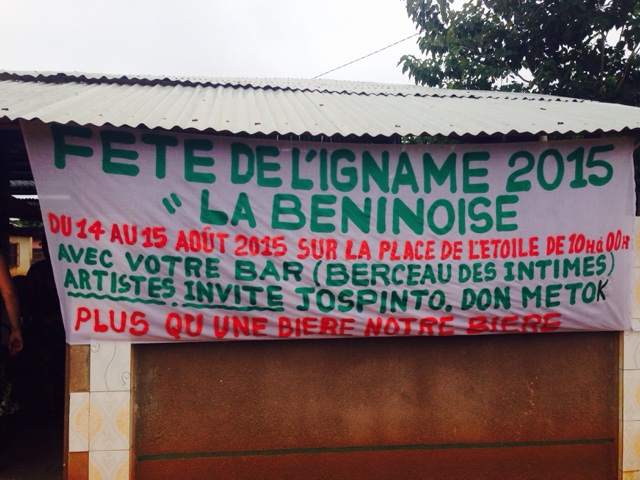 FETE DE L'IGNAME 2015
" LA BENINOISE
DU 14 AU 15 AOÛT 2015 SUR LA PLACE DE L'ETOILE DE 10H à 00H
AVEC VOTRE BAR (BERCEAU DES INTIMES)
ARTISTES INVITE JOSPINTO. DON METOK
PLUS QU UNE BIERE NOTRE BIERE